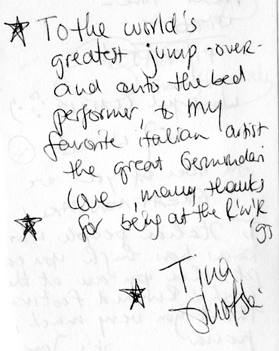 To the world's
greatest jump-over-
and onto the bed
performer, to my
favorite italian artist
the great
Love, many thanks
for being at the R'n'R
'93
Tina